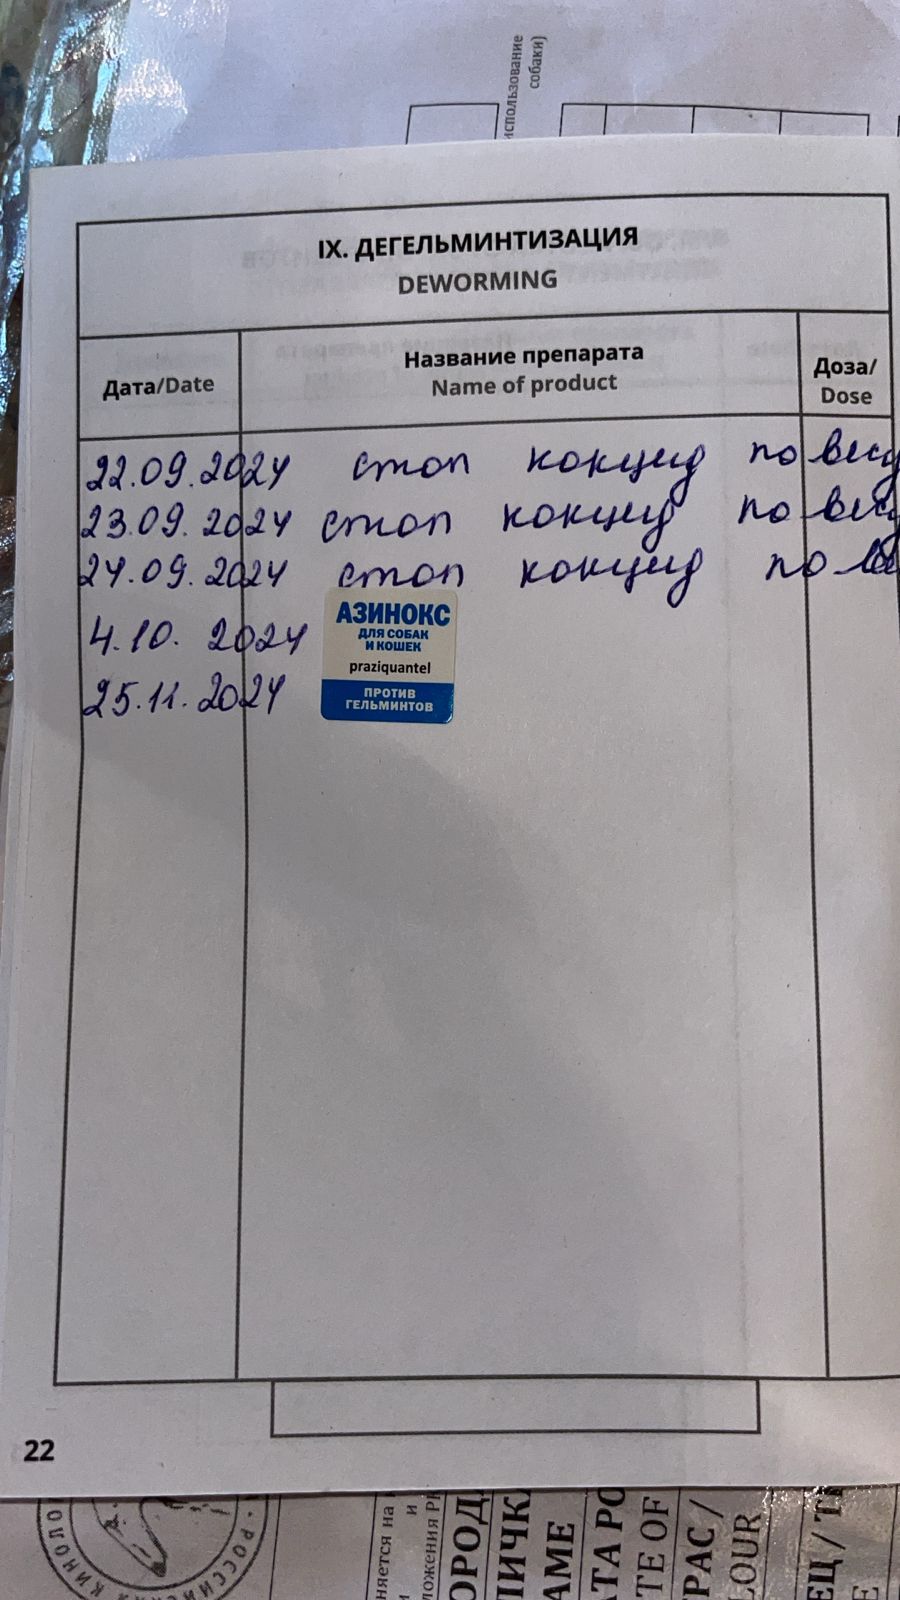 использование
собаки)
IX. ДЕГЕЛЬМИНТИЗАЦИЯ
DEWORMING
Дата/Date
Название препарата
Name of product
Доза/
Dose
22.09.2024 стоп кокцид по весу
23.09.2024 стоп кокцид по весу
24.09.2024 стоп кокцид по
4.10.2024
25.11.2024
АЗИНОКС
ДЛЯ СОБАК
И КОШЕК
praziquantel
ПРОТИВ
ГЕЛЬМИНТОВ
22
няется на
и
ложения РК
ОРОД
ЛИЧК
AME
АТА РО
TE OF
РАС /
LOUR
ЕЦ / Т